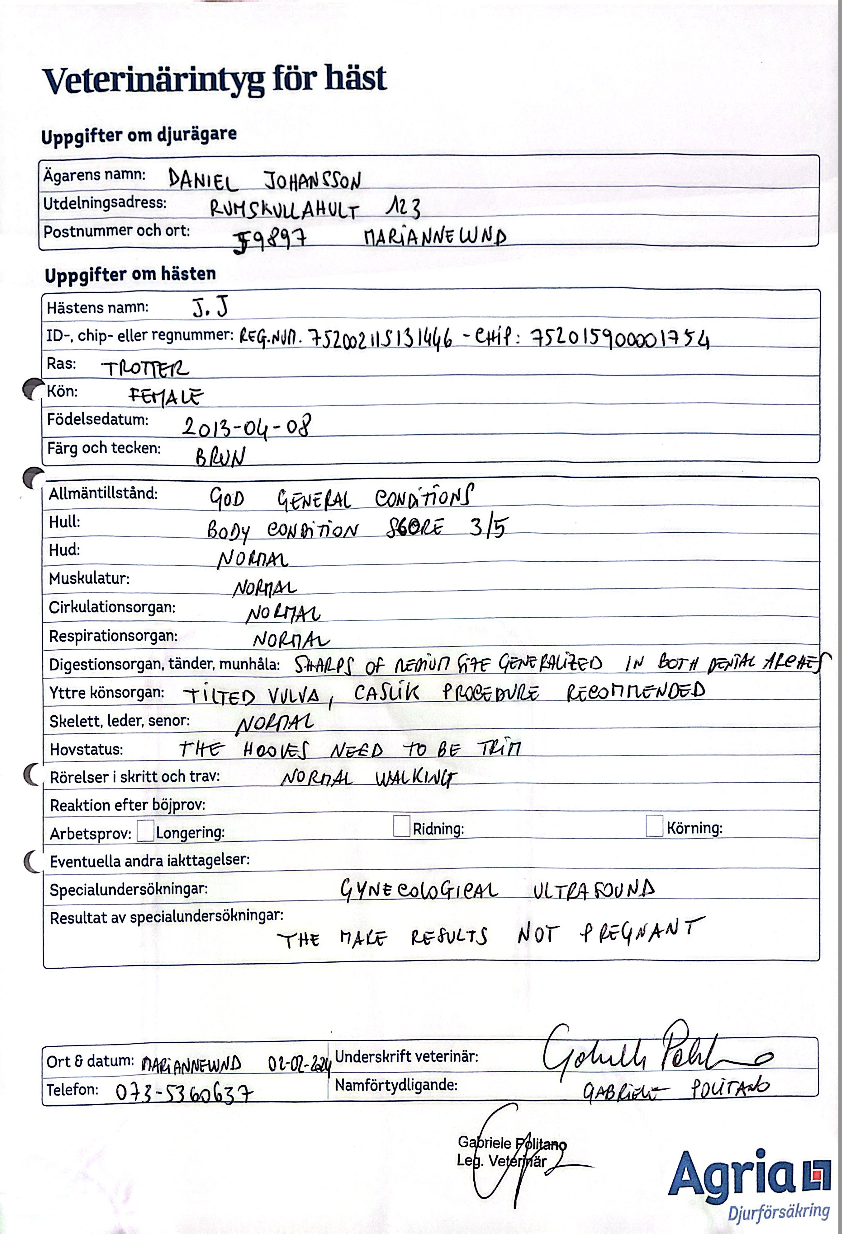 Veterinärintyg för häst
Uppgifter om djurägare
Ägarens namn: DANIEL JOHANSSON
Utdelningsadress: RUMSKULLAHULT 123
Postnummer och ort: 59897 MARIANNELUND
Uppgifter om hästen
Hästens namn: J.J
ID-, chip- eller regnummer: REG.NUM. 752002115131446 - CHIP: 752015900001754
Ras: TROTTER
Kön: FEMALE
Födelsedatum: 2013-04-08
Färg och tecken: BRUN
Allmäntillstånd: GOD GENERAL CONDITIONS
Hull: BODY CONDITION SCORE 3/5
Hud: NORMAL
Muskulatur: NORMAL
Cirkulationsorgan: NORMAL
Respirationsorgan: NORMAL
Digestionsorgan, tänder, munhåla: SHARPS OF MEDIUM SIZE GENERALIZED IN BOTH DENTAL ARCHES
Yttre könsorgan: TILTED VULVA, CASLIK PROCEDURE RECOMMENDED
Skelett, leder, senor: NORMAL
Hovstatus: THE HOOVES NEED TO BE TRIM
Rörelser i skritt och trav: NORMAL WALKING
Reaktion efter böjprov:
Arbetsprov: Longering: Ridning: Körning:
Eventuella andra iakttagelser:
Specialundersökningar: GYNECOLOGICAL ULTRASOUND
Resultat av specialundersökningar:
THE MARE RESULTS NOT PREGNANT
Ort & datum: MARIANNELUND 02-02-2024 Underskrift veterinär:
Telefon: 073-5360637 Namförtydligande: GABRIELE POLITANO
Gabriele Politano
Leg. Veterinär
Agria
Djurförsäkring